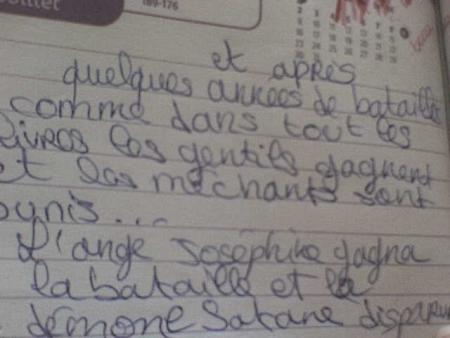 illet
169-176
et après
quelques années de bataille
comme dans tout les
livres les gentils gagnent
et les méchants sont
punis...
L'ange Joséphine gagna
la bataille et la
démone Satane disparu